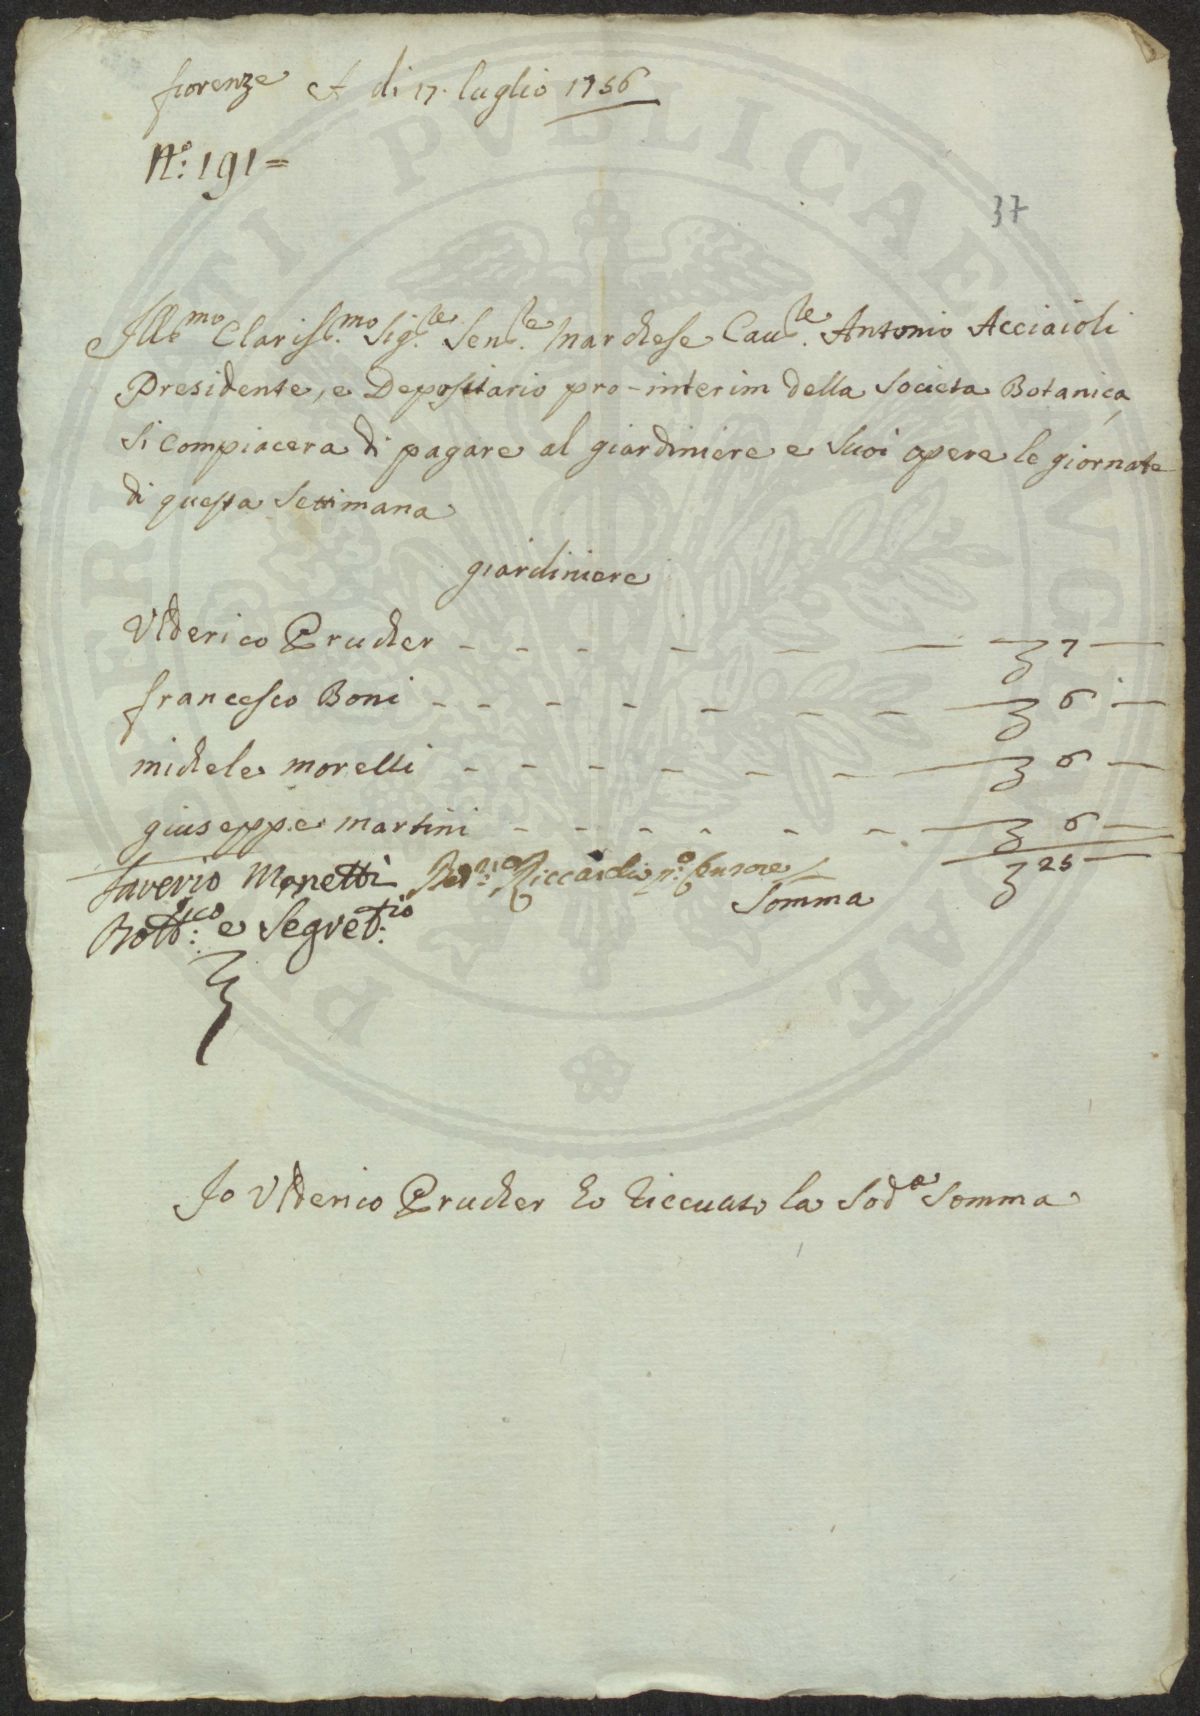 fiorenze A di 17. luglio 1756
N.o 191=
37
Ill.mo Claris.mo Sig.re Sen.re Marchese Cau.re Antonio Acciaioli
Presidente, e Depositario pro-interim della Societa Botanica,
Si compiacera di pagare al giardiniere e Suoi opere le giornate
di questa Settimana
giardiniere
Vlderico Prucher - - - - - - 7 -
francesco Boni - - - - - - - 6 -
michele morelli - - - - - - - 6 -
giuseppe martini - - - - - - - 6 -
Saverio Manetti Riccardi p.o Censore 25 -
Somma
Bott.ico e Segret.io
Jo Vlderico Prucher ho riceuato la Sod.a Somma
PVBLICAE